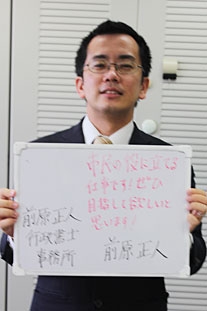 市民の役に立てる
仕事です！ぜひ
目指して欲しいと
思います！
前原正人
行政書士
事務所
前原正人